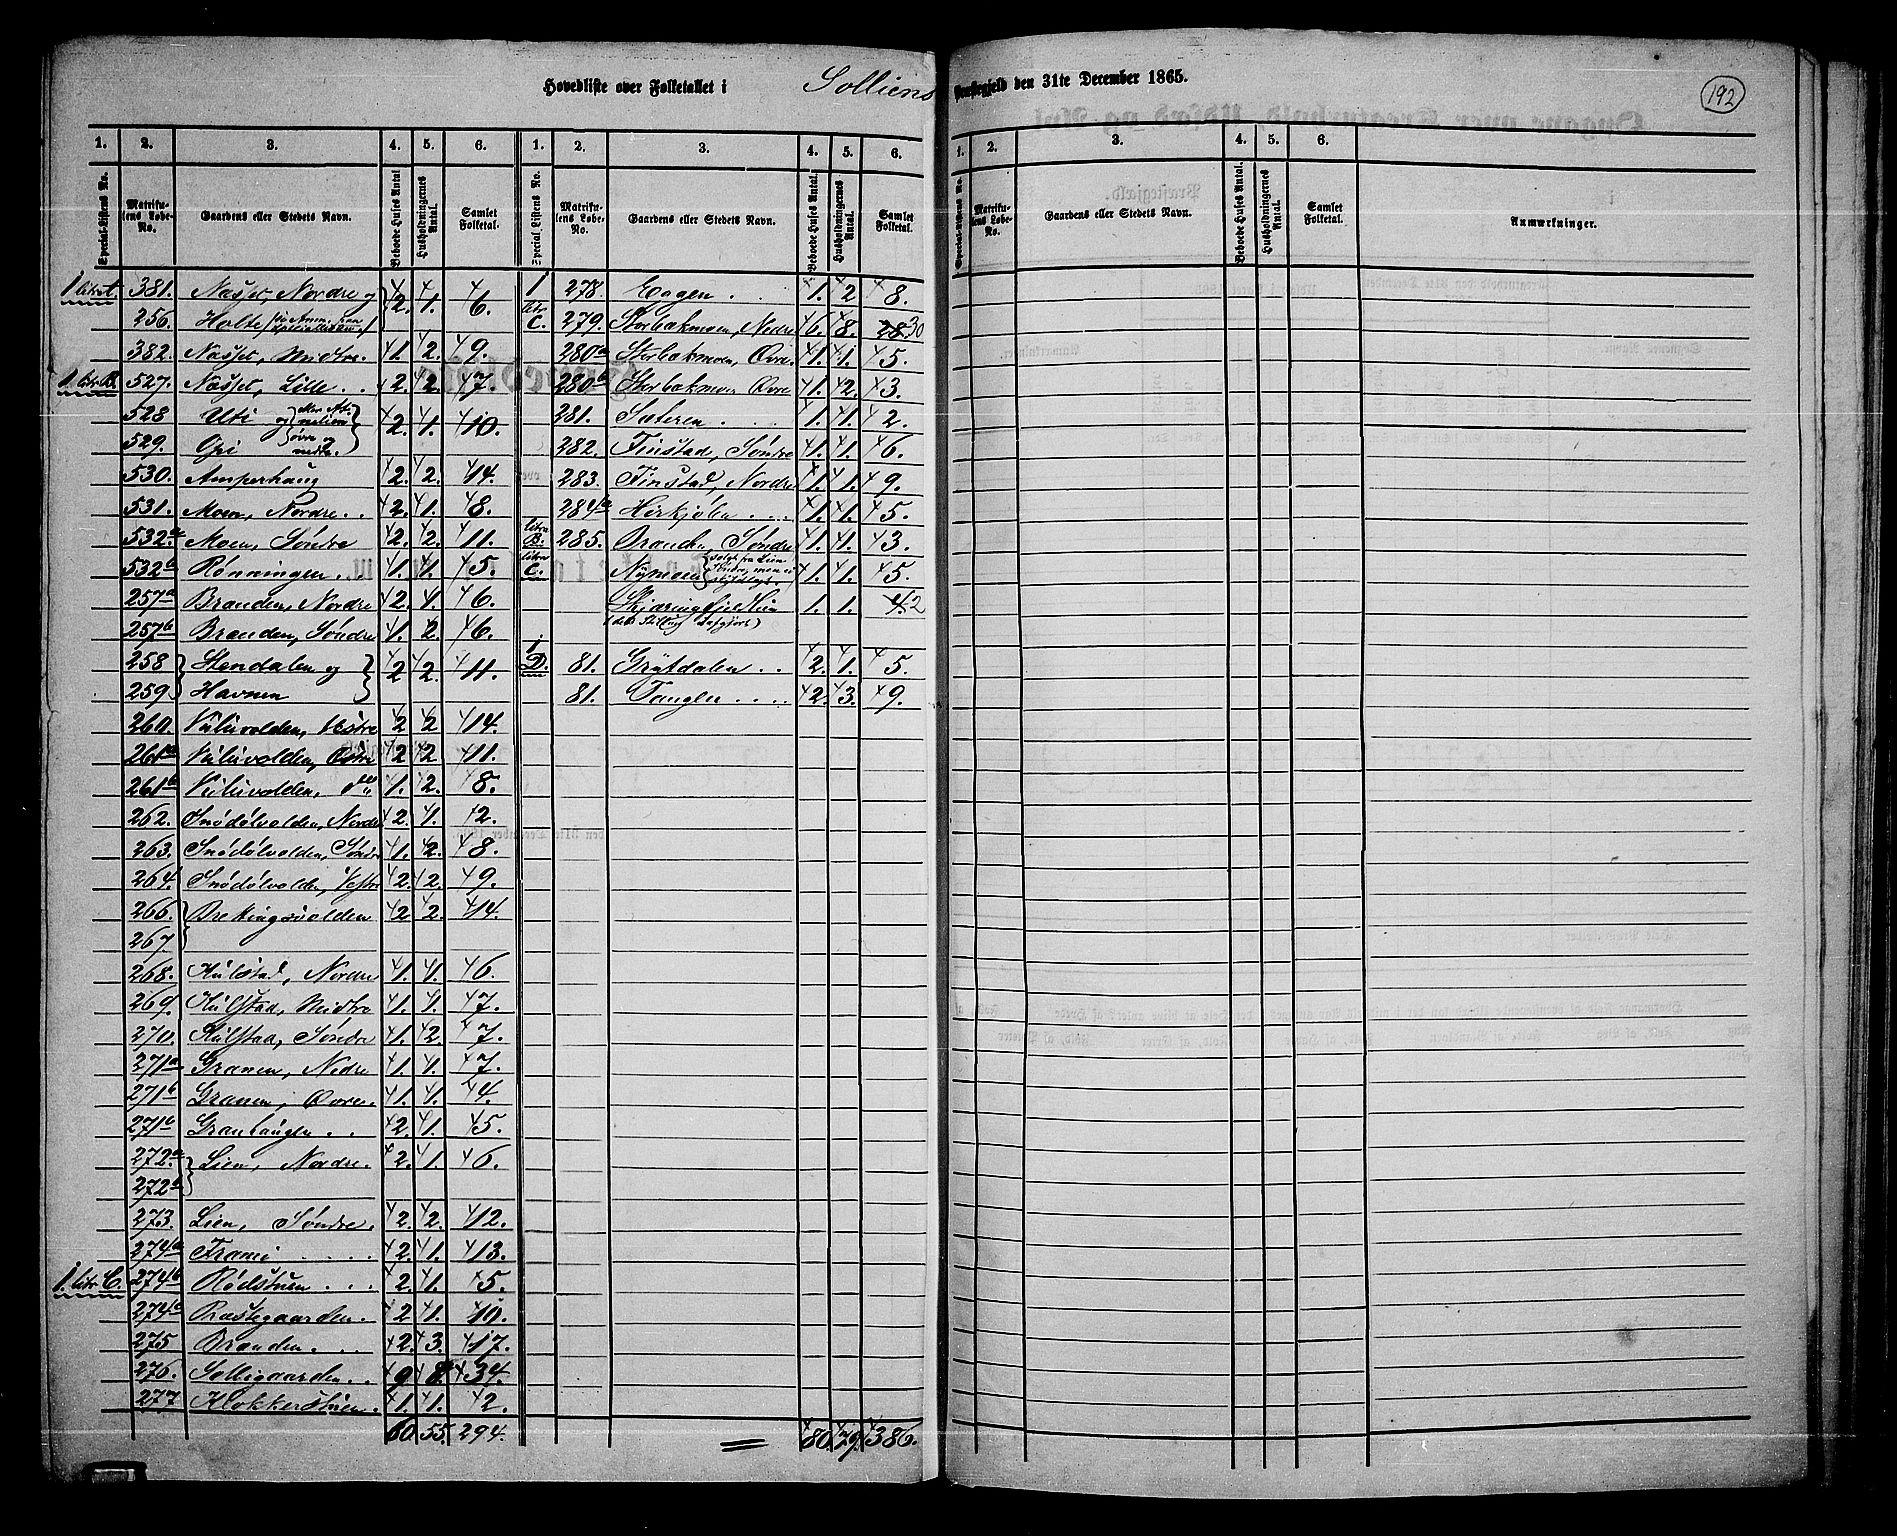 Hovedliste over Folketallet i Solliens Præstegjeld den 31te December 1865.
192
1. 2. 3. 4. 5. 6. 1. 2. 3. 4. 5. 6.
Special-Listens No. Matrikulens Løbe-No. Gaardens eller Stedets Navn. Beboede Huses Antal Husholdningernes Antal. Samlet Folketal. Special Listens No. Matrikulens Løbe-No. Gaardens eller Stedets Navn. Beboede Huses Antal. Husholdningernes Antal. Samlet Folketal.
1 litr A. 381. Næsset, Nordre og 2. 1. 6.
256. Holte
382. Næsset, Midtre. 1. 2. 9.
1 litr B. 527. Næsset, Lille . . 2. 2. 7.
528 Uti og 2. 1. 10.
529. Opi øvre og nedre.
530. Amperhaug 2. 2. 14.
531. Moen, Nordre. . 2. 1. 8.
532.a Moen, Søndre 2. 2. 11.
532b Rønningen . 1. 1. 5.
257a Branden, Nordre 2. 1. 6.
257b Branden, Søndre 1. 2. 6.
258 Stendalen og 2. 2. 11.
259 Havnen
260. Vuluvolden, Vestre 2 2 14.
261a Vuluvolden, Østre 2 2 11.
261b Vuluvolden, 1. 2. 8.
262. Snødølvolden, Nordre 2. 1. 2.
263. Snødølvolden, Søndre 1. 2. 8.
264. Snødølvolden, Vestre 2. 2. 9.
266. Brekingsvolden 2 2. 14.
267.
268. Kulstad, Nordre 1. 1. 6.
269. Kulstad, Midtre 1. 1. 7.
270. Kulstad, Søndre 1. 2. 7.
271a Granen, Nedre 1. 1. 7.
271b Granen, Øvre. 1. 1. 4.
271c Granhaugen . . 2. 1. 5.
272.a Lien, Nordre. 2. 1. 6.
272b
273. Lien, Søndre. 2. 2. 12.
274a Frami . . . . 2. 1. 13.
1. litr C. 274b Rødstuen . . . 2. 1. 5.
274c Præstegaarden. 2. 1. 10.
275 Branden. . . 2. 3. 17.
276. Solligaarden. . 9 8 34.
277 Klokkerstuen. 1. 1. 2.
60. 55. 294.
1 litr C. 278. Eggen . . . 1. 2 8.
279. Storbækmoen, Nedre 6. 8. 28. 30
280a Storbækmoen, Øvre. 1. 1. 5.
280b Storbækmoen Øvre 1. 2. 3.
281. Sæteren . . . 1. 1. 2.
282. Finstad, Søndre 1. 1. 6.
283. Finstad, Nordre 1. 1. 9.
284a Hirkjølen . . . 1. 1. 5.
litra B. 285. Branden, Søndre 1. 1. 3.
litra C. Nymoen solgt fra Lien Søndre, men ei skyldlagt. 1. 1. 5.
Skjæringfjeldhien 1. 1. 4. 2
1 D. 81. Grøtdalen . . 2. 1. 5.
81. Tangen . . . . 2. 3. 9.
80. 79. 386.
1. 2. 3. 4. 5. 6.
Special-Listens No. Matrikulens Løbe-No. Gaardens eller Stedets Navn. Beboede Huses Antal. Husholdningernes Antal. Samlet Folketal. Anmærkninger.